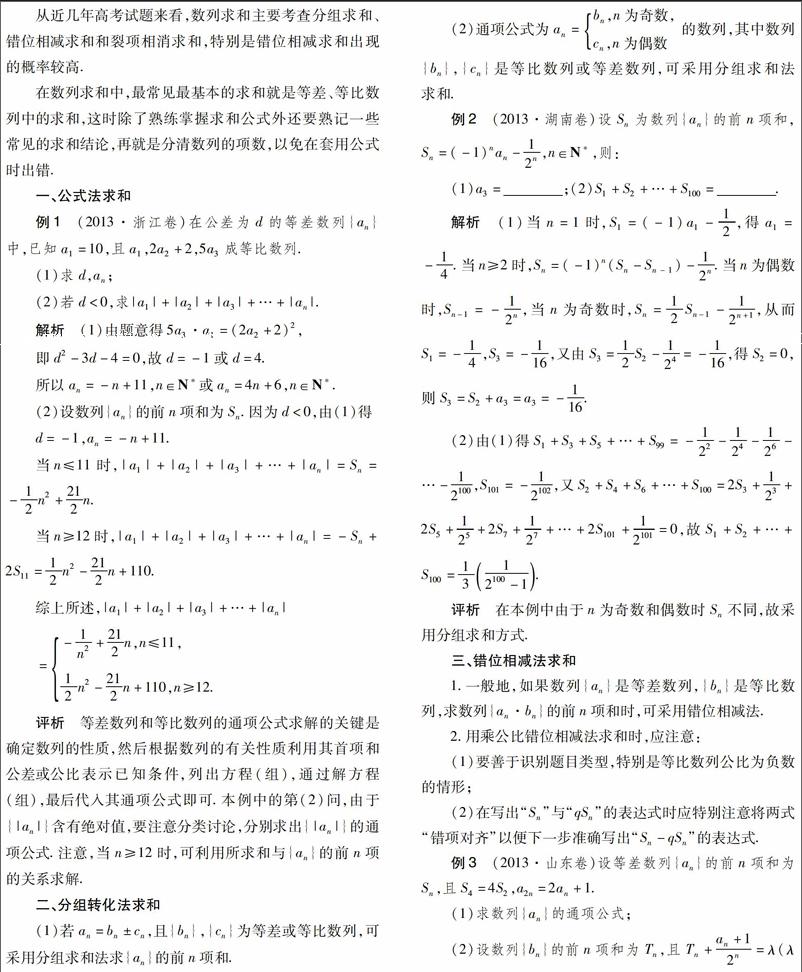 从近几年高考试题来看,数列求和主要考查分组求和、
错位相减求和和裂项相消求和,特别是错位相减求和出现
的概率较高.
在数列求和中,最常见最基本的求和就是等差、等比数
列中的求和,这时除了熟练掌握求和公式外还要熟记一些
常见的求和结论,再就是分清数列的项数,以免在套用公式
时出错.
一、公式法求和
例1 (2013·浙江卷)在公差为 d 的等差数列{aₙ}
中,已知 a₁=10,且 a₁,2a₂+2,5a₃ 成等比数列.
(1)求 d,aₙ;
(2)若 d<0,求|a₁|+|a₂|+|a₃|+…+|aₙ|.
解析 (1)由题意得 5a₃·a₁=(2a₂+2)²,
即 d²-3d-4=0,故 d=-1 或 d=4.
所以 aₙ=-n+11,n∈N*或 aₙ=4n+6,n∈N*.
(2)设数列{aₙ}的前 n 项和为 Sₙ.因为 d<0,由(1)得
d=-1,aₙ=-n+11.
当 n≤11 时,|a₁|+|a₂|+|a₃|+…+|aₙ|=Sₙ=
-1/2n²+21/2n.
当 n≥12 时,|a₁|+|a₂|+|a₃|+…+|aₙ|=-Sₙ+
2S₁₁=1/2n²-21/2n+110.
综上所述,|a₁|+|a₂|+|a₃|+…+|aₙ|
={-1/n²+21/2n,n≤11,
1/2n²-21/2n+110,n≥12.
评析 等差数列和等比数列的通项公式求解的关键是
确定数列的性质,然后根据数列的有关性质利用其首项和
公差或公比表示已知条件,列出方程(组),通过解方程
(组),最后代入其通项公式即可.本例中的第(2)问,由于
{|aₙ|}含有绝对值,要注意分类讨论,分别求出{|aₙ|}的通
项公式.注意,当 n≥12 时,可利用所求和与{aₙ}的前 n 项
的关系求解.
二、分组转化法求和
(1)若 aₙ=bₙ±cₙ,且{bₙ},{cₙ}为等差或等比数列,可
采用分组求和法求{aₙ}的前 n 项和.
(2)通项公式为 aₙ={bₙ,n 为奇数, cₙ,n 为偶数 的数列,其中数列
{bₙ},{cₙ}是等比数列或等差数列,可采用分组求和法
求和.
例2 (2013·湖南卷)设 Sₙ 为数列{aₙ}的前 n 项和,
Sₙ=(-1)ⁿaₙ-1/2ⁿ,n∈N*,则:
(1)a₃=________;(2)S₁+S₂+…+S₁₀₀=________.
解析 (1)当 n=1 时,S₁=(-1)a₁-1/2,得 a₁=
-1/4.当 n≥2 时,Sₙ=(-1)ⁿ(Sₙ-Sₙ₋₁)-1/2ⁿ.当 n 为偶数
时,Sₙ₋₁=-1/2ⁿ,当 n 为奇数时,Sₙ=1/2Sₙ₋₁-1/2ⁿ⁺¹,从而
S₁=-1/4,S₃=-1/16,又由 S₃=1/2S₂-1/2⁴=-1/16,得 S₂=0,
则 S₃=S₂+a₃=a₃=-1/16.
(2)由(1)得 S₁+S₃+S₅+…+S₉₉=-1/2²-1/2⁴-1/2⁶-
…-1/2¹⁰⁰,S₁₀₁=-1/2¹⁰²,又 S₂+S₄+S₆+…+S₁₀₀=2S₃+1/2³+
2S₅+1/2⁵+2S₇+1/2⁷+…+2S₁₀₁+1/2¹⁰¹=0,故 S₁+S₂+…+
S₁₀₀=1/3(1/(2¹⁰⁰-1)).
评析 在本例中由于 n 为奇数和偶数时 Sₙ 不同,故采
用分组求和方式.
三、错位相减法求和
1.一般地,如果数列{aₙ}是等差数列,{bₙ}是等比数
列,求数列{aₙ·bₙ}的前 n 项和时,可采用错位相减法.
2.用乘公比错位相减法求和时,应注意:
(1)要善于识别题目类型,特别是等比数列公比为负数
的情形;
(2)在写出“Sₙ”与“qSₙ”的表达式时应特别注意将两式
“错项对齐”以便下一步准确写出“Sₙ-qSₙ”的表达式.
例3 (2013·山东卷)设等差数列{aₙ}的前 n 项和为
Sₙ,且 S₄=4S₂,a₂ₙ=2aₙ+1.
(1)求数列{aₙ}的通项公式;
(2)设数列{bₙ}的前 n 项和为 Tₙ,且 Tₙ+(aₙ+1)/2ⁿ=λ(λ